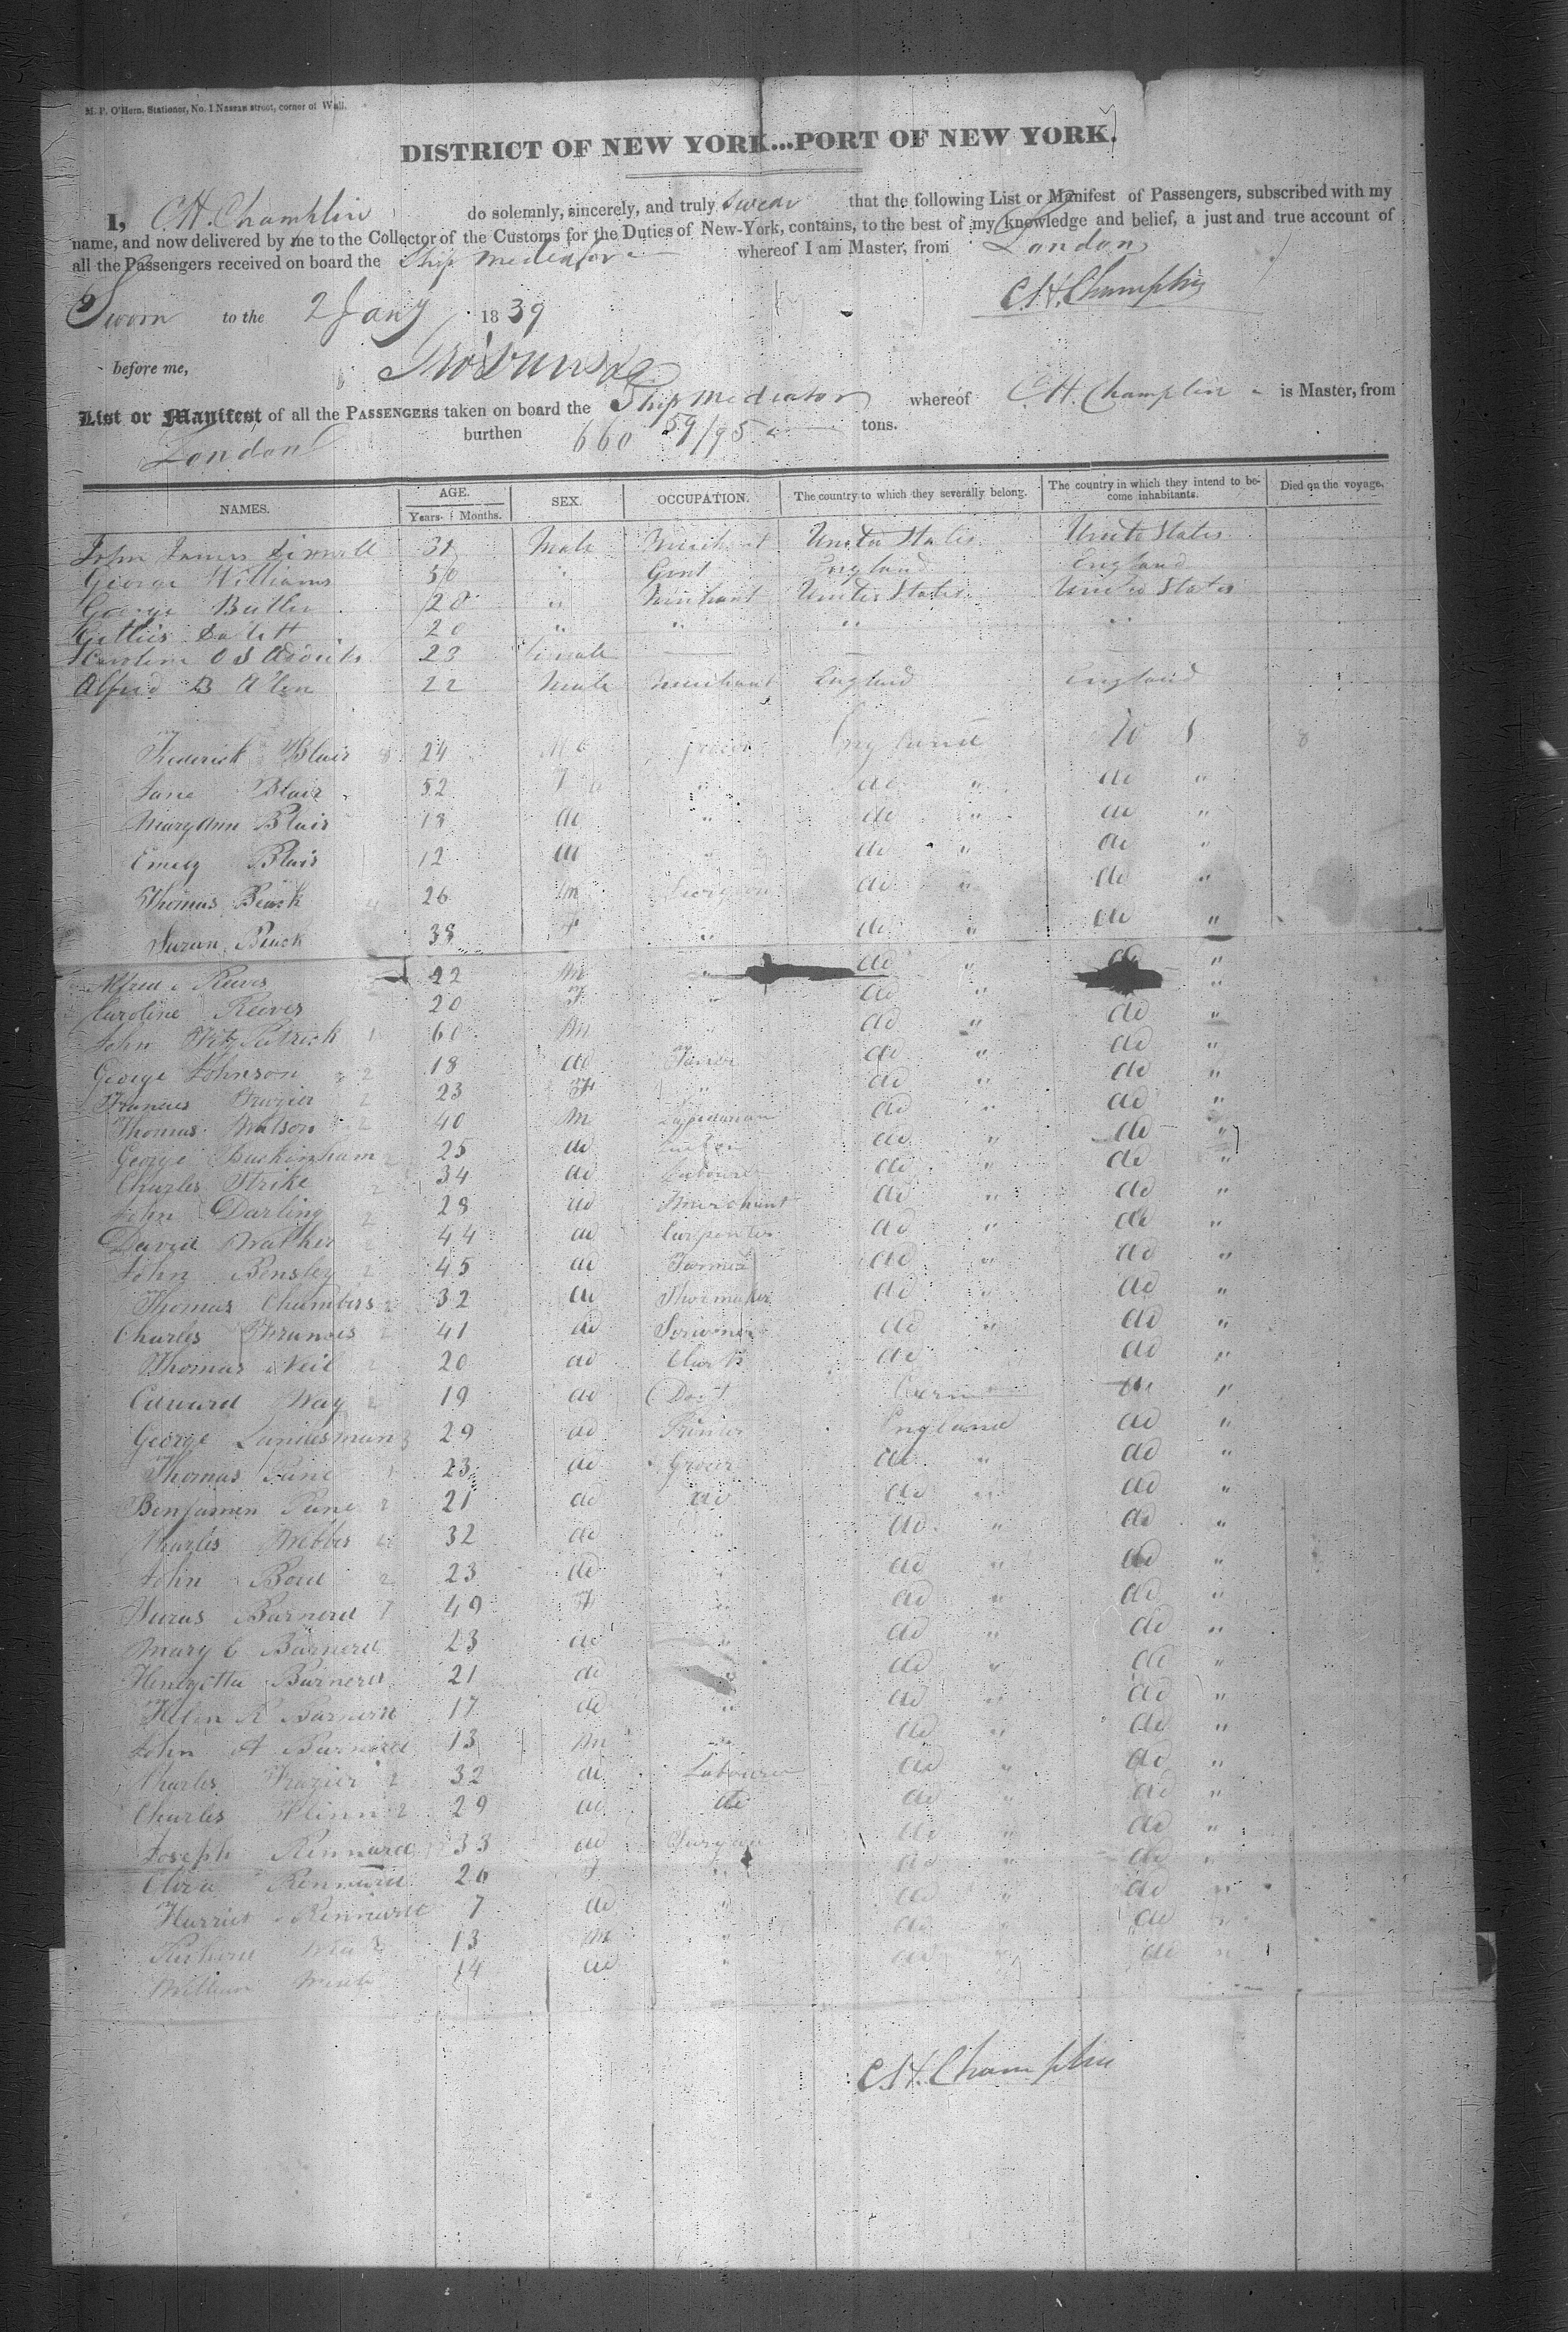 M. P. O'Hern, Stationer, No. 1 Nassau street, corner of Wall.
DISTRICT OF NEW YORK...PORT OF NEW YORK.
I, C. H. Champlin do solemnly, sincerely, and truly Swear that the following List or Manifest of Passengers, subscribed with my
name, and now delivered by me to the Collector of the Customs for the Duties of New-York, contains, to the best of my knowledge and belief, a just and true account of
all the Passengers received on board the Ship Mediator whereof I am Master, from London
C. H. Champlin
Sworn to the 2 Jany 1839
before me,
List or Manifest of all the PASSENGERS taken on board the Ship Mediator whereof C. H. Champlin is Master, from
London burthen 660 59/95 tons.
NAMES. AGE. Years. Months. SEX. OCCUPATION. The country to which they severally belong. The country in which they intend to become inhabitants. Died on the voyage.
John James Male Merchant United States United States
George Williams 50 " Gent England England
George Butler 28 " Merchant United States United States
20 " " " "
Caroline 23 Female
Alfred B Allen 22 Male Merchant England England
Frederick Blair 8 24 England U S 8
Jane Blair 52 F " do " do "
Mary Ann Blair 18 do " do " do "
Emily Blair 12 do " do " do "
Thomas 26 m do " do "
Suzan 38 F " do " do "
Alfred Reeves 22 m " do " do "
Caroline Reeves 20 F " do " do "
John Fitz Patrick 60 m do " do "
George Johnson 2 18 do do " do "
Frances Frazier 2 23 F " do " do "
Thomas Watson 2 40 m Lapidarian do " do "
George Buckingham 2 25 do do " do "
Charles Strike 2 34 do Labourer do " do "
John Darling 2 28 do Merchant do " do "
David Walker 2 44 do Carpenter do " do "
John Bensley 2 45 do Farmer do " do "
Thomas Chambers 2 32 do Shoemaker do " do "
Charles Francis 2 41 do Scrivener do " do "
Thomas Neil 2 20 do Clark do do "
Edward Way 2 19 do do "
George Landesman 3 29 do Printer England do "
Thomas Pane 23 do Grocer do " do "
Benjamen Pane 2 21 do do do " do "
Charles Webber 32 do " do " do "
John 2 23 do " do " do "
Barnerd 7 49 F " do " do "
Mary E Barnerd 23 do " do " do "
Henryetta Barnerd 21 do " do " do "
Helen R Barnerd 17 do " do " do "
John A Barnerd 13 m " do " do "
Charles Frazier 2 32 do Labourer do " do "
Charles Flinn 2 29 do do do " do "
Joseph Rennard 33 do do " do "
Eliza Rennard 26 F " do " do "
Harriet Rennard 7 do " do " do "
13 m " do " do "
William 14 do " do " do "
C. H. Champlin